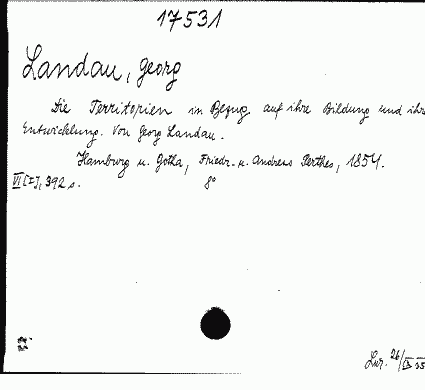 17531
Landau, Georg
Die Territorien in Bezug auf ihre Bildung und ihre
Entwicklung. Von Georg Landau.
Hamburg u. Gotha, Friedr. u. Andreas Perthes, 1854.
VI [I], 392 s. 8°
26/IX 55